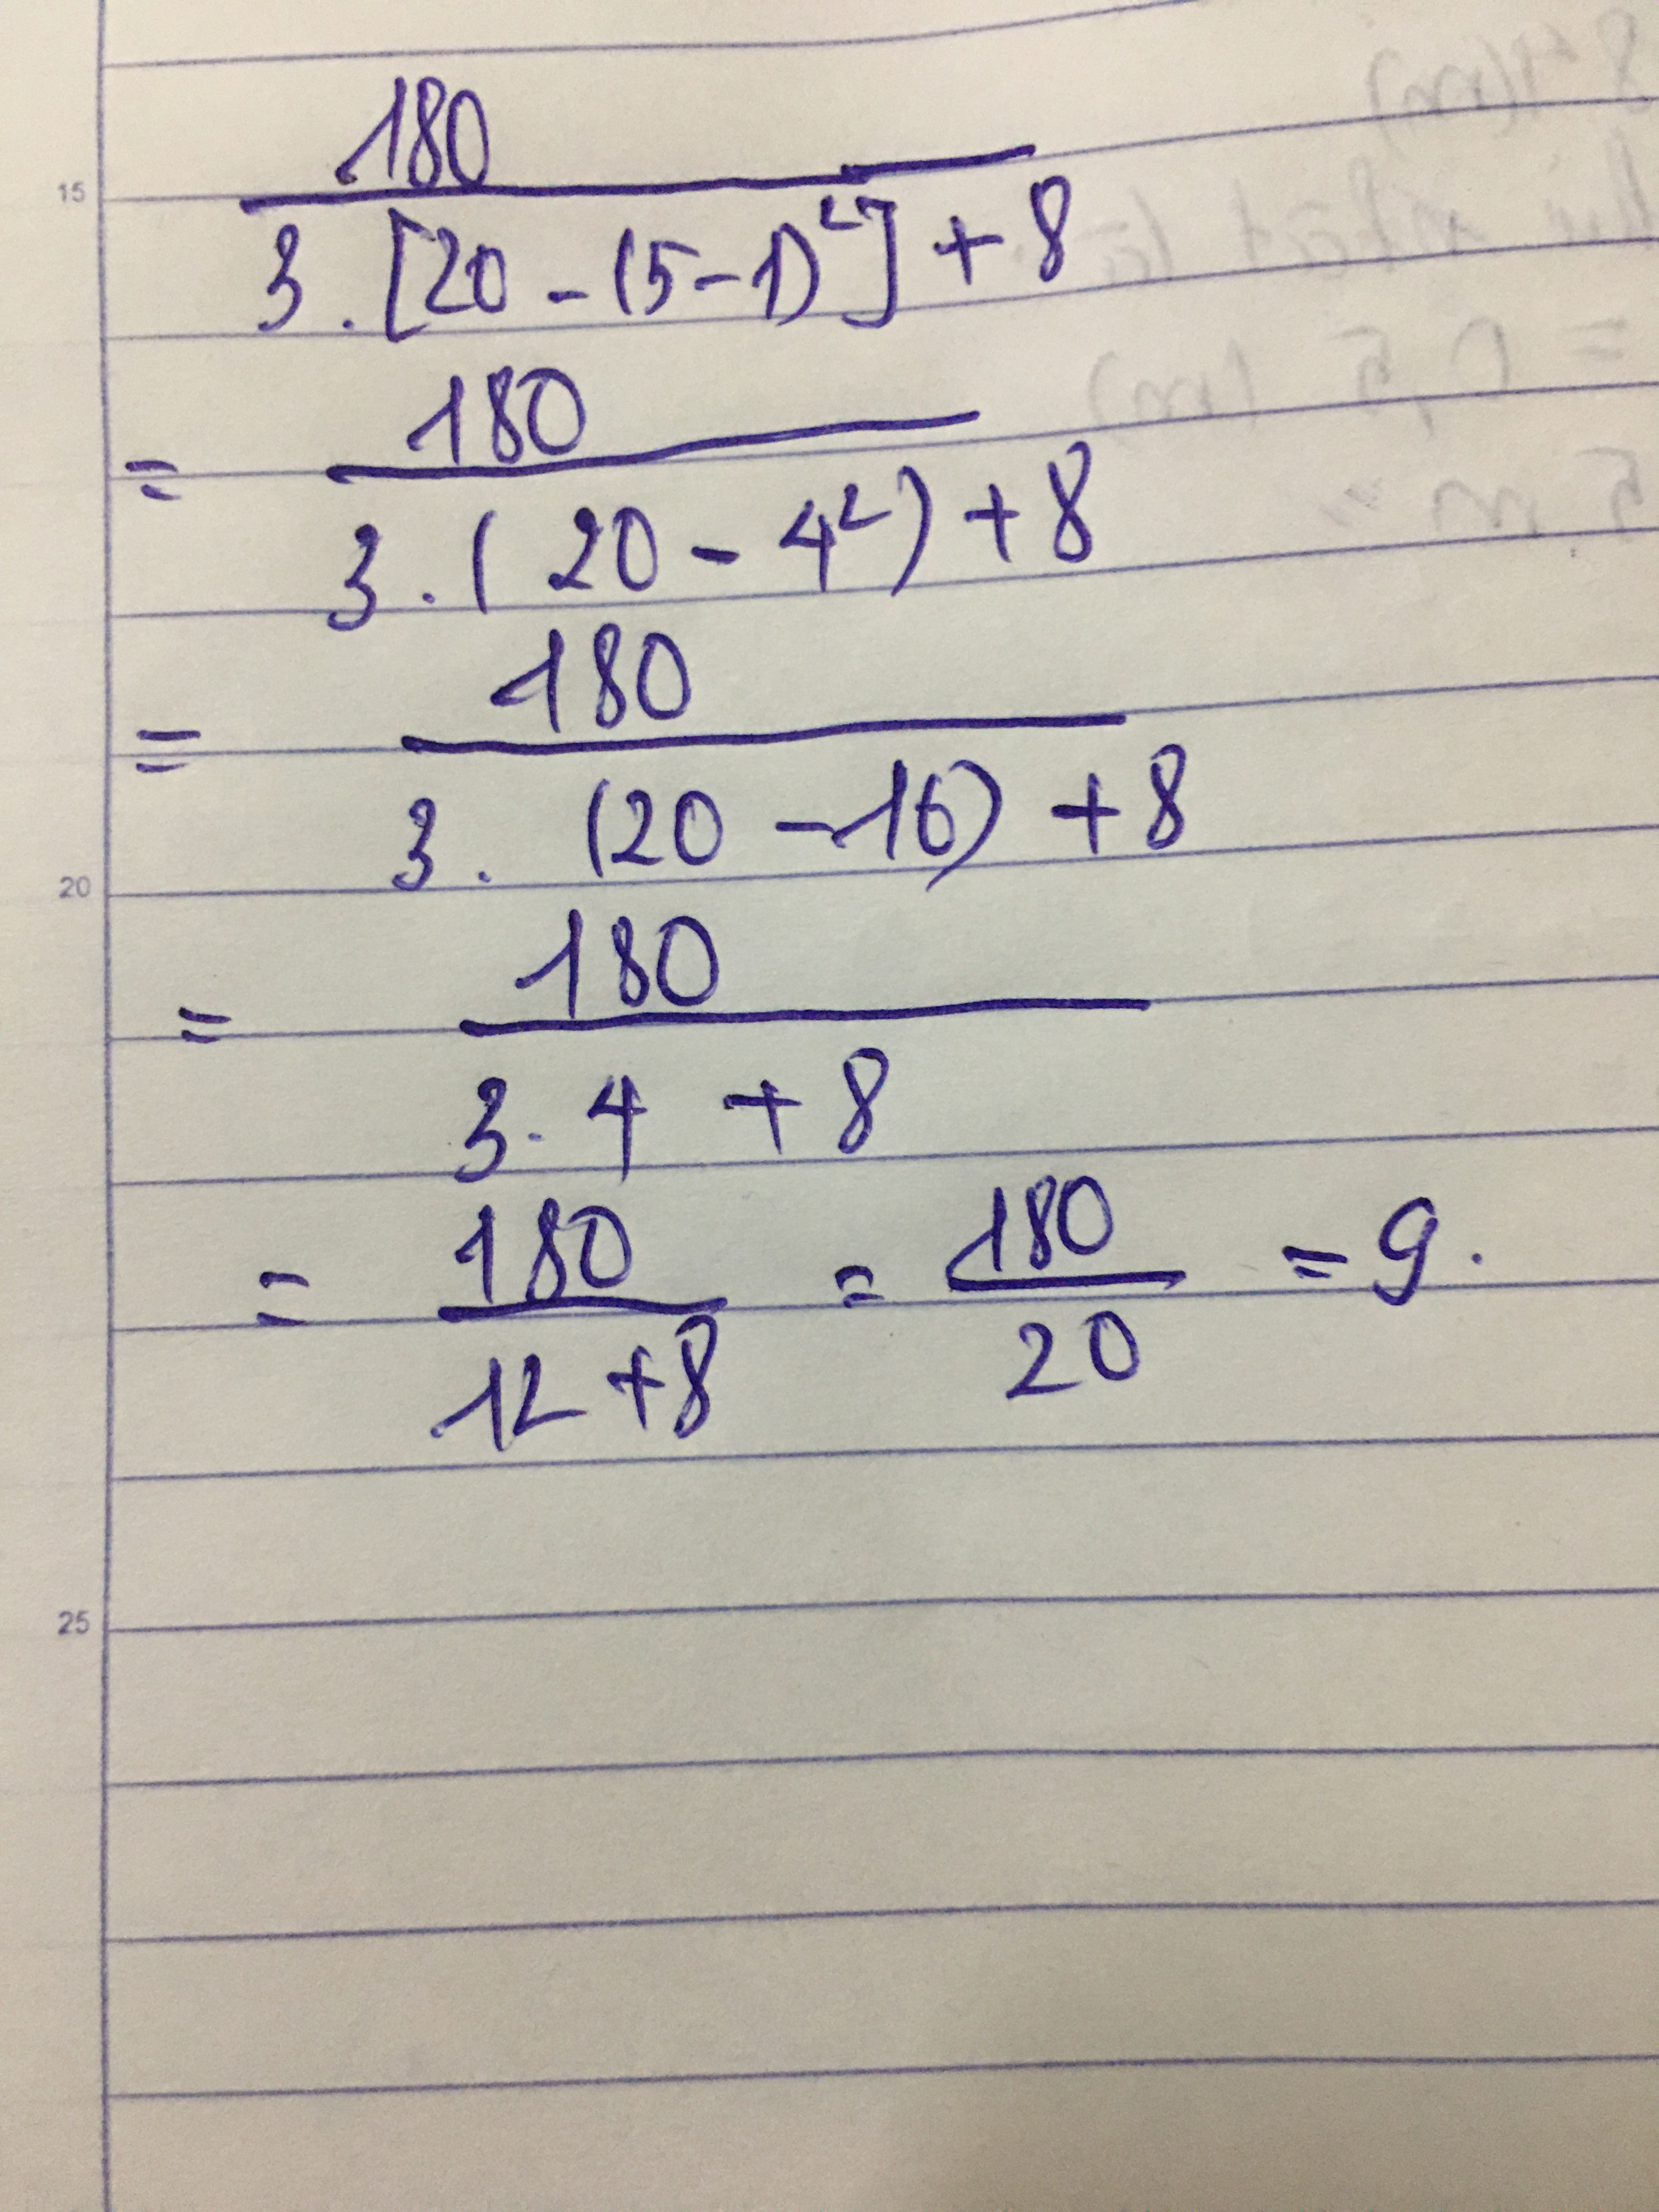 15
180
3.[20-(5-1)²]+8
= 180
3.(20-4²)+8
= 180
3. (20-16)+8
20
= 180
3.4+8
= 180 = 180 = 9.
12+8 20
25